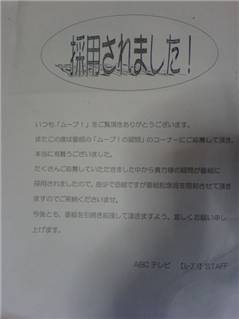 採用されました！
いつも「ムーブ！」をご覧頂きありがとうございます。
またこの度は番組の「ムーブ！の疑問」のコーナーにご応募して頂き、
本当に有難うございました。
たくさんご応募していただきました中から貴方様の疑問が番組に
採用されましたので、些少で恐縮ですが番組記念品を同封させて頂き
ますのでご笑納くださいませ。
今後とも、番組を引続き応援して頂きますよう、宜しくお願い申し
上げます。
ABCテレビ 【ムーブ!】STAFF